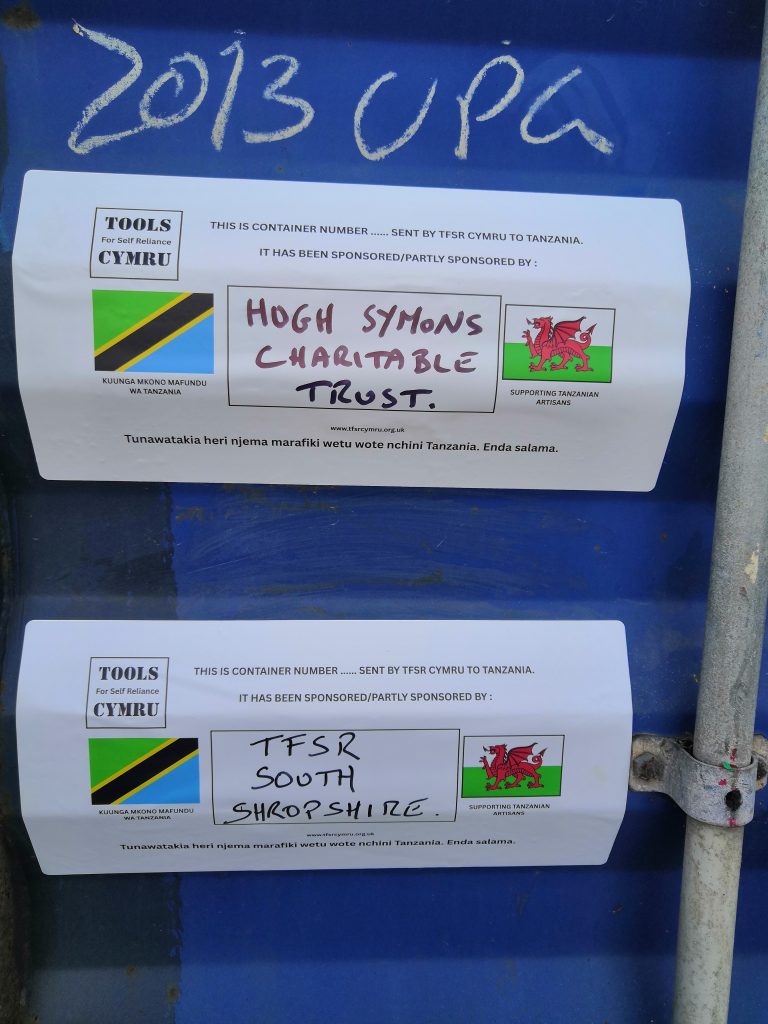 2013 UPG
TOOLS
For Self Reliance
CYMRU
THIS IS CONTAINER NUMBER ...... SENT BY TFSR CYMRU TO TANZANIA.
IT HAS BEEN SPONSORED/PARTLY SPONSORED BY :
HUGH SYMONS
CHARITABLE
TRUST.
KUUNGA MKONO MAFUNDU
WA TANZANIA
SUPPORTING TANZANIAN
ARTISANS
www.tfsrcymru.org.uk
Tunawatakia heri njema marafiki wetu wote nchini Tanzania. Enda salama.
TOOLS
For Self Reliance
CYMRU
THIS IS CONTAINER NUMBER ...... SENT BY TFSR CYMRU TO TANZANIA.
IT HAS BEEN SPONSORED/PARTLY SPONSORED BY :
TFSR
SOUTH
SHROPSHIRE.
KUUNGA MKONO MAFUNDU
WA TANZANIA
SUPPORTING TANZANIAN
ARTISANS
www.tfsrcymru.org.uk
Tunawatakia heri njema marafiki wetu wote nchini Tanzania. Enda salama.